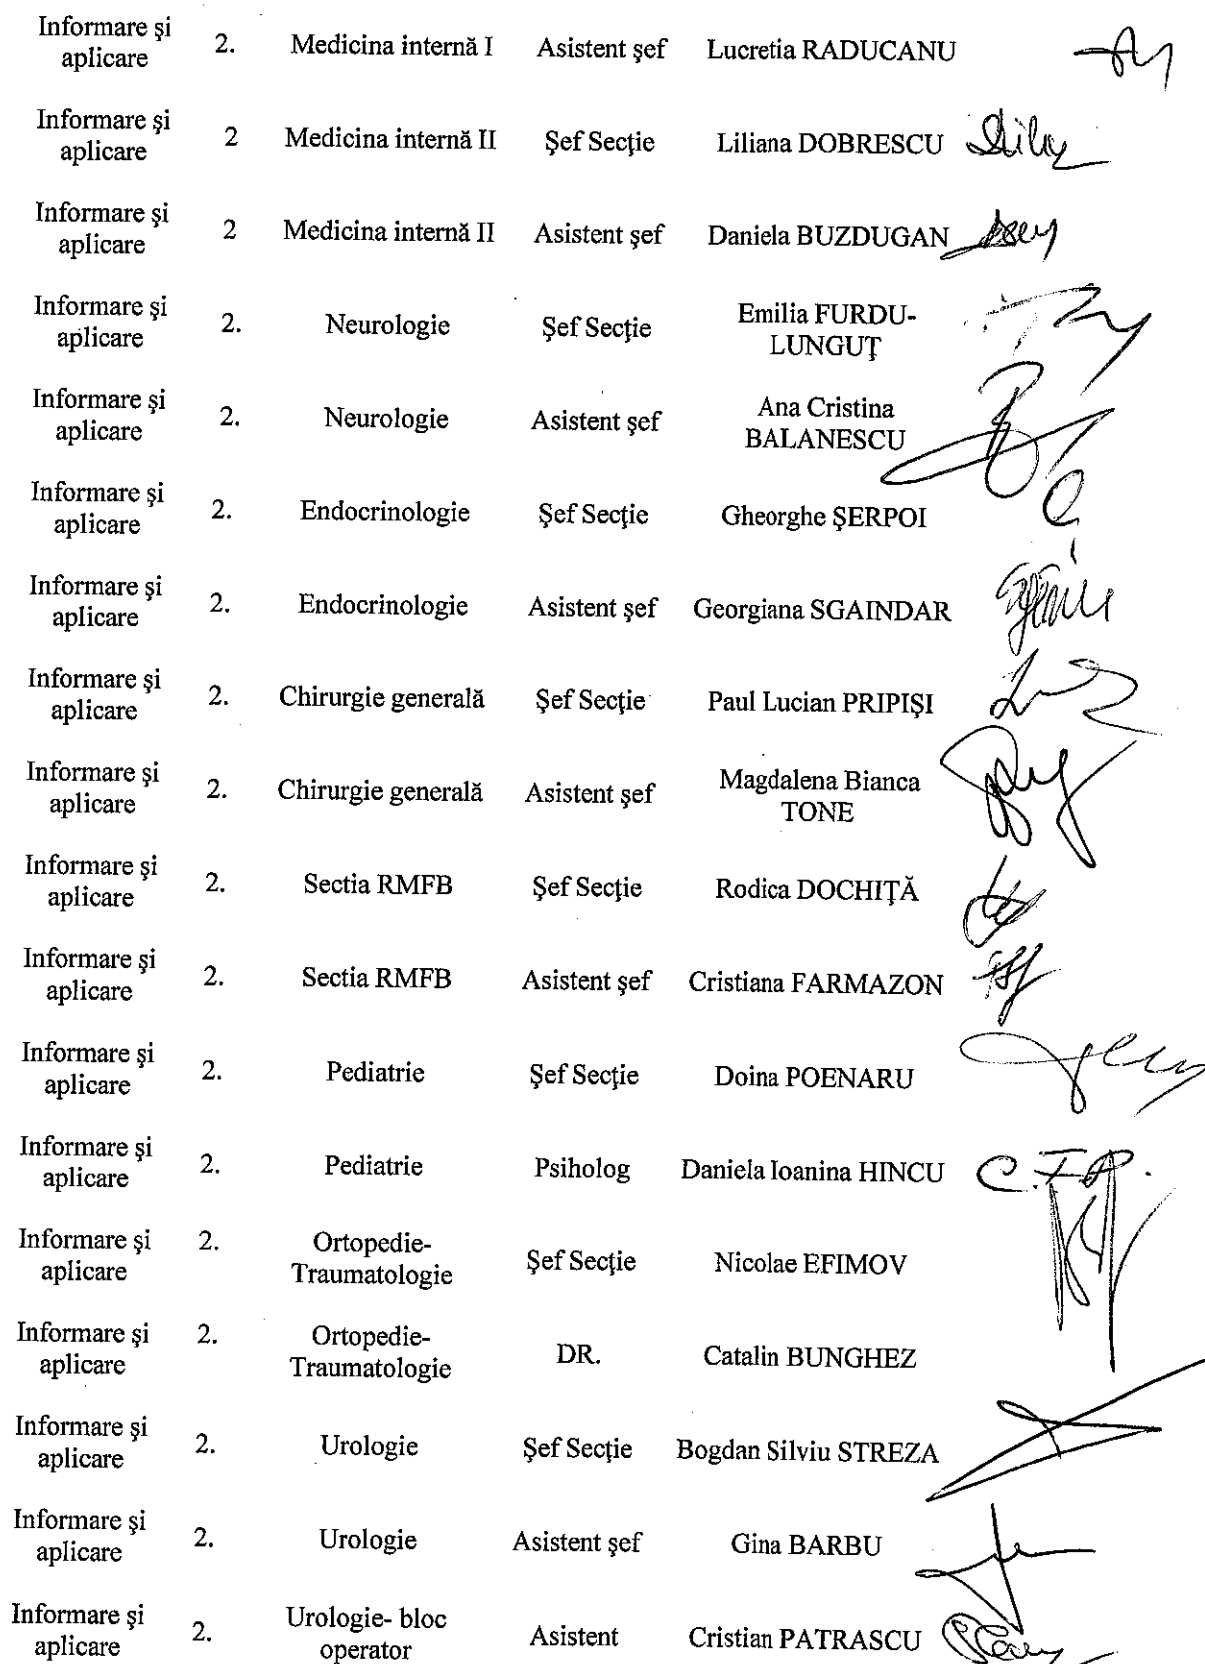 Informare şi aplicare 2. Medicina internă I Asistent şef Lucretia RADUCANU
Informare şi aplicare 2 Medicina internă II Şef Secţie Liliana DOBRESCU
Informare şi aplicare 2 Medicina internă II Asistent şef Daniela BUZDUGAN
Informare şi aplicare 2. Neurologie Şef Secţie Emilia FURDU-LUNGUŢ
Informare şi aplicare 2. Neurologie Asistent şef Ana Cristina BALANESCU
Informare şi aplicare 2. Endocrinologie Şef Secţie Gheorghe ŞERPOI
Informare şi aplicare 2. Endocrinologie Asistent şef Georgiana SGAINDAR
Informare şi aplicare 2. Chirurgie generală Şef Secţie Paul Lucian PRIPIŞI
Informare şi aplicare 2. Chirurgie generală Asistent şef Magdalena Bianca TONE
Informare şi aplicare 2. Sectia RMFB Şef Secţie Rodica DOCHIŢĂ
Informare şi aplicare 2. Sectia RMFB Asistent şef Cristiana FARMAZON
Informare şi aplicare 2. Pediatrie Şef Secţie Doina POENARU
Informare şi aplicare 2. Pediatrie Psiholog Daniela Ioanina HINCU
Informare şi aplicare 2. Ortopedie-Traumatologie Şef Secţie Nicolae EFIMOV
Informare şi aplicare 2. Ortopedie-Traumatologie DR. Catalin BUNGHEZ
Informare şi aplicare 2. Urologie Şef Secţie Bogdan Silviu STREZA
Informare şi aplicare 2. Urologie Asistent şef Gina BARBU
Informare şi aplicare 2. Urologie- bloc operator Asistent Cristian PATRASCU